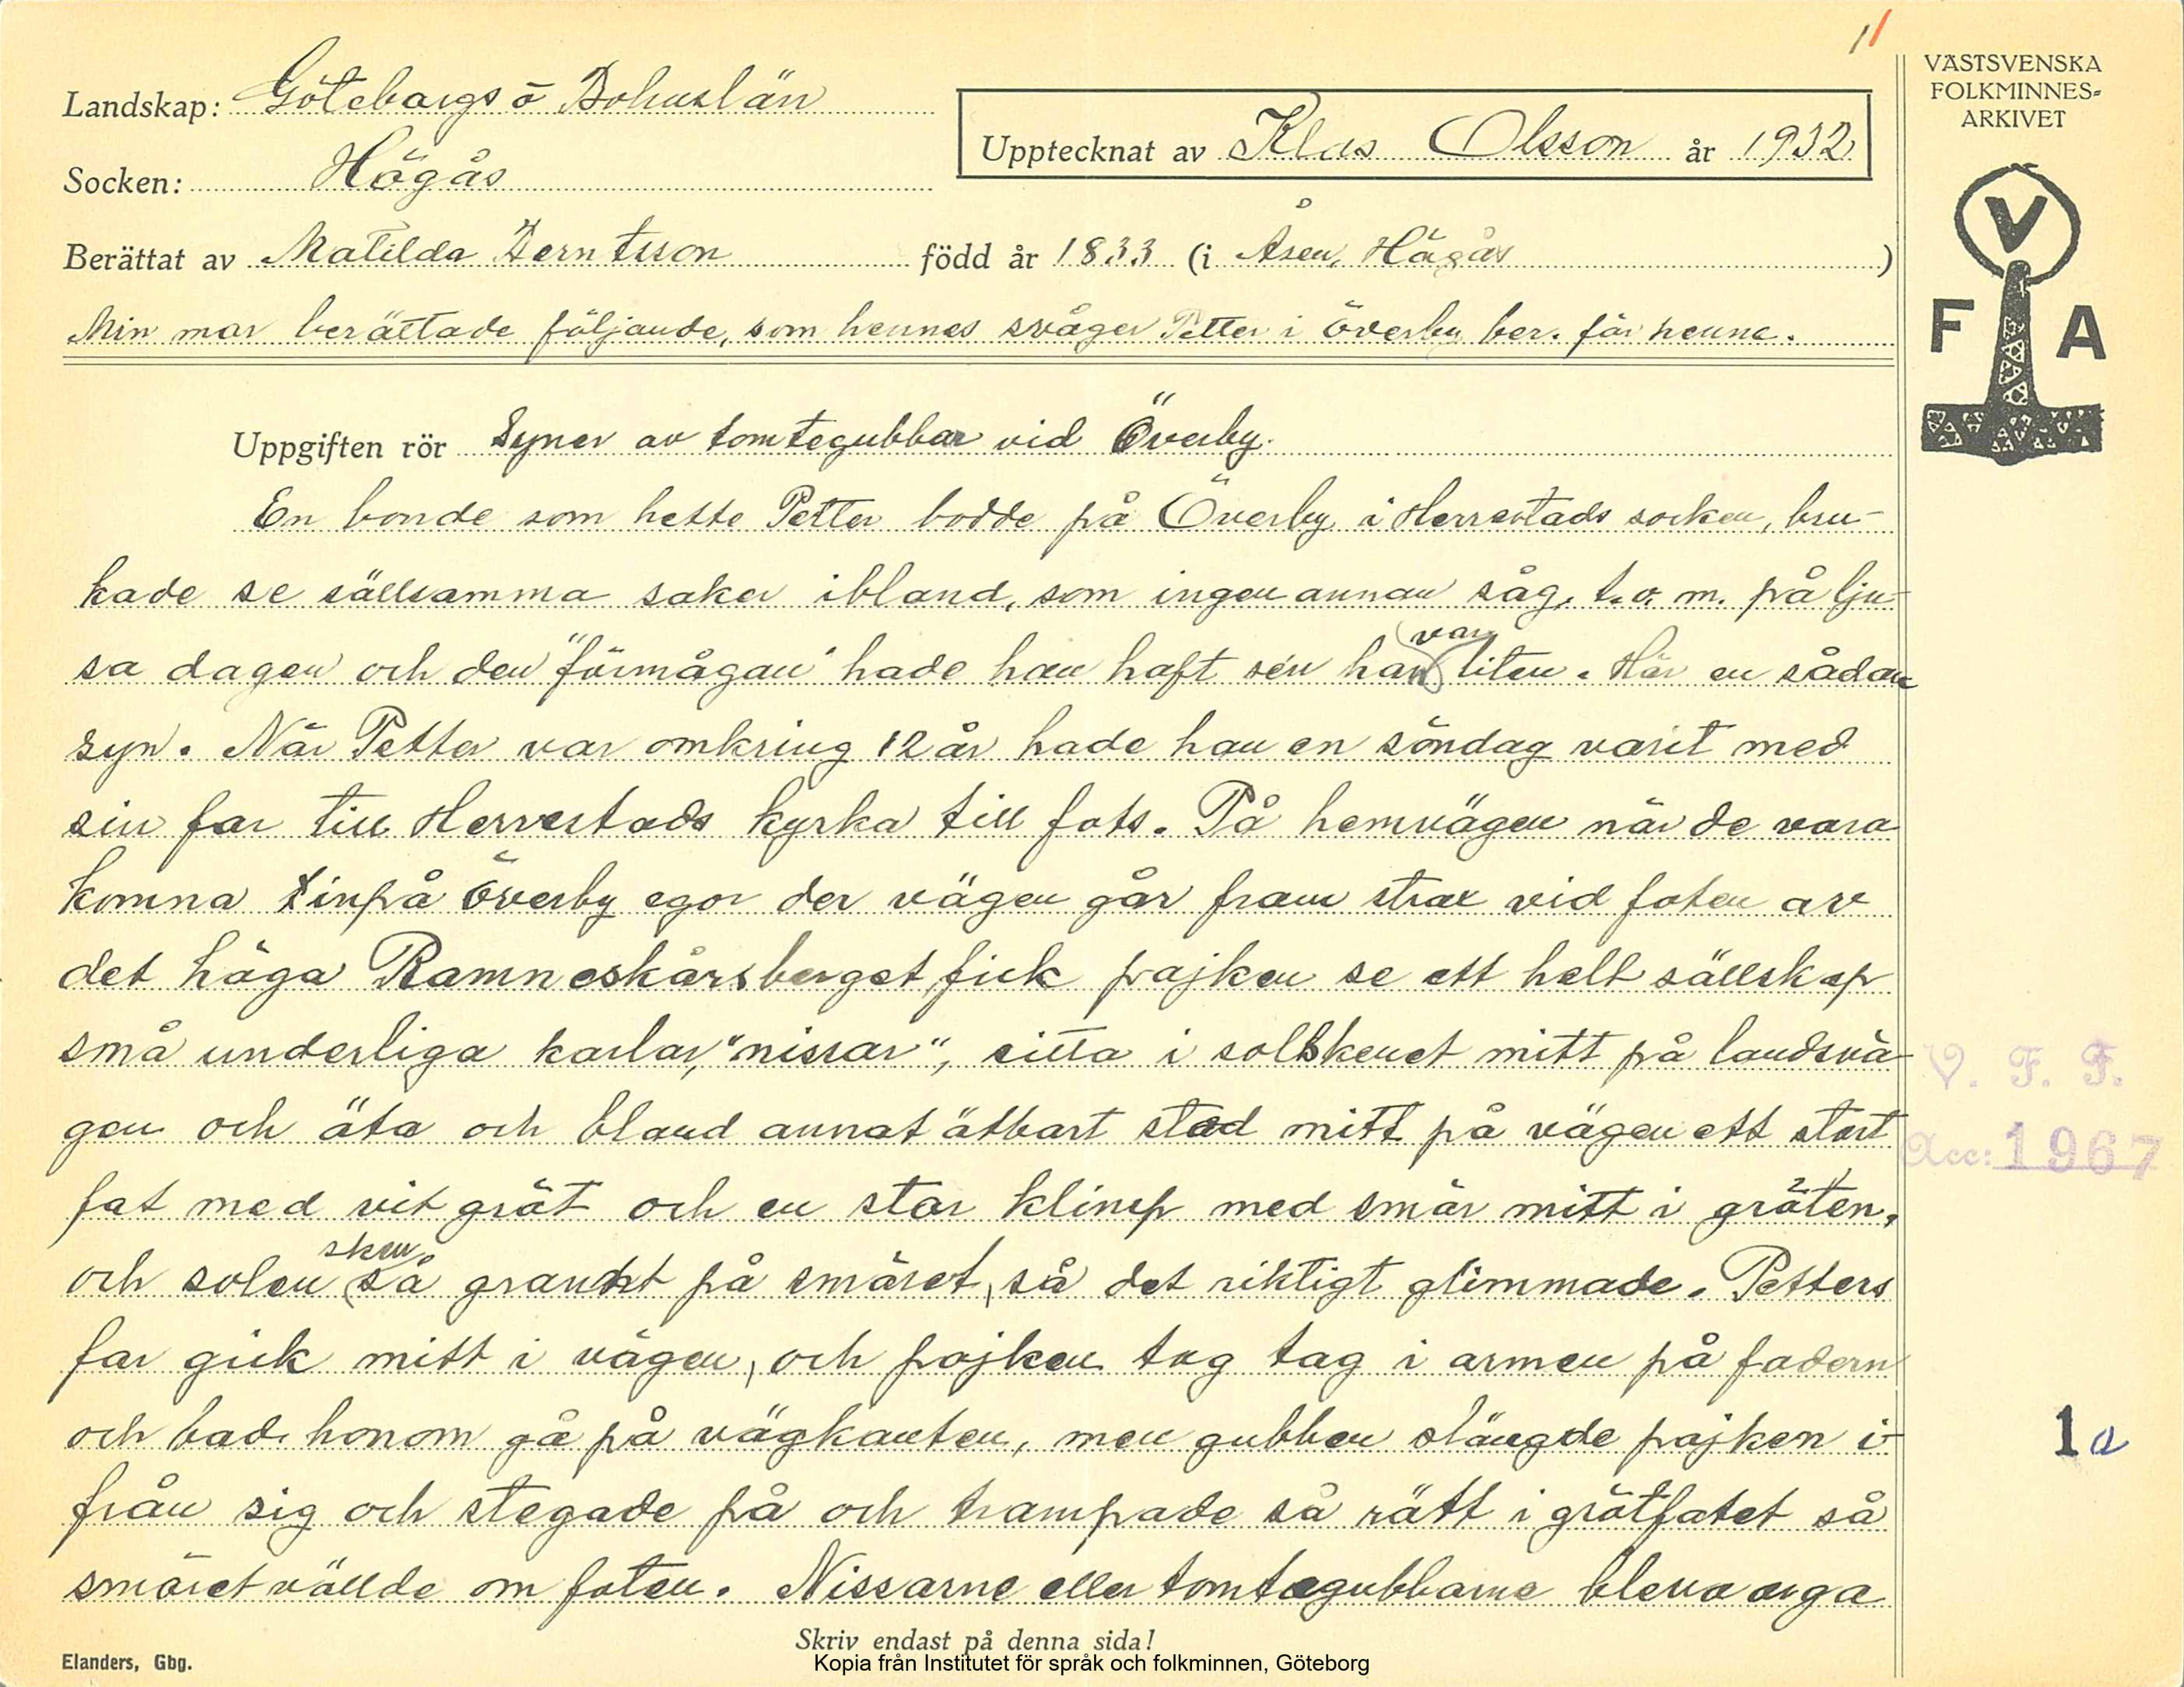 11
VÄSTSVENSKA
FOLKMINNES-
ARKIVET
V
F A
Landskap: Göteborgs o Bohuslän
Upptecknat av Klas Olsson år 1932
Socken: Högås
Berättat av Matilda Berntsson född år 1833 (i Åsen, Högås)
Min mor berättade följande, som hennes svåger Petter i Överby ber. för henne.
Uppgiften rör Syner av tomtegubbar vid Överby.
En bonde som hette Petter bodde på Överby i Herrestads socken, bru-
kade se sällsamma saker ibland, som ingen annan såg, t.o.m. på lju-
sa dagen och den "förmågan" hade han haft sen han var liten. Här en sådan
syn. När Petter var omkring 12 år hade han en söndag varit med
sin far till Herrestads kyrka till fots. På hemvägen när de vara
komna inpå Överby egor der vägen går fram strax vid foten av
det höga Ramneskårsberget, fick pojken se ett helt sällskap
små underliga karlar, "nissar", sitta i solskenet mitt på landsvä-
gen och äta och bland annat ätbart stod mitt på vägen ett stort
fat med vit gröt och en stor klimp med smör mitt i gröten,
och solen sken så grant på smöret, så det riktigt glimmade. Petters
far gick mitt i vägen, och pojken tog tag i armen på fadern
och bad honom gå på vägkanten, men gubben slängde pojken i-
från sig och stegade på och trampade så rätt i grötfatet så
smöret vällde om foten. Nissarne eller tomtegubbarne bleva arga
V. F. F.
Acc: 1967
1a
Skriv endast på denna sida!
Elanders, Gbg.
Kopia från Institutet för språk och folkminnen, Göteborg